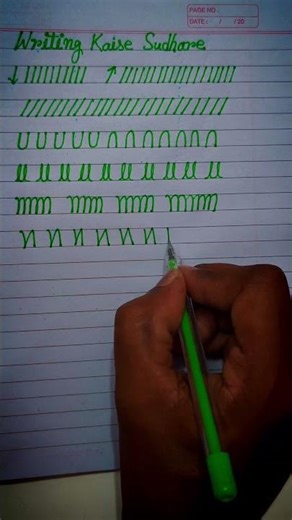 PAGE NO.:
DATE: / /20
Writing Kaise Sudhare